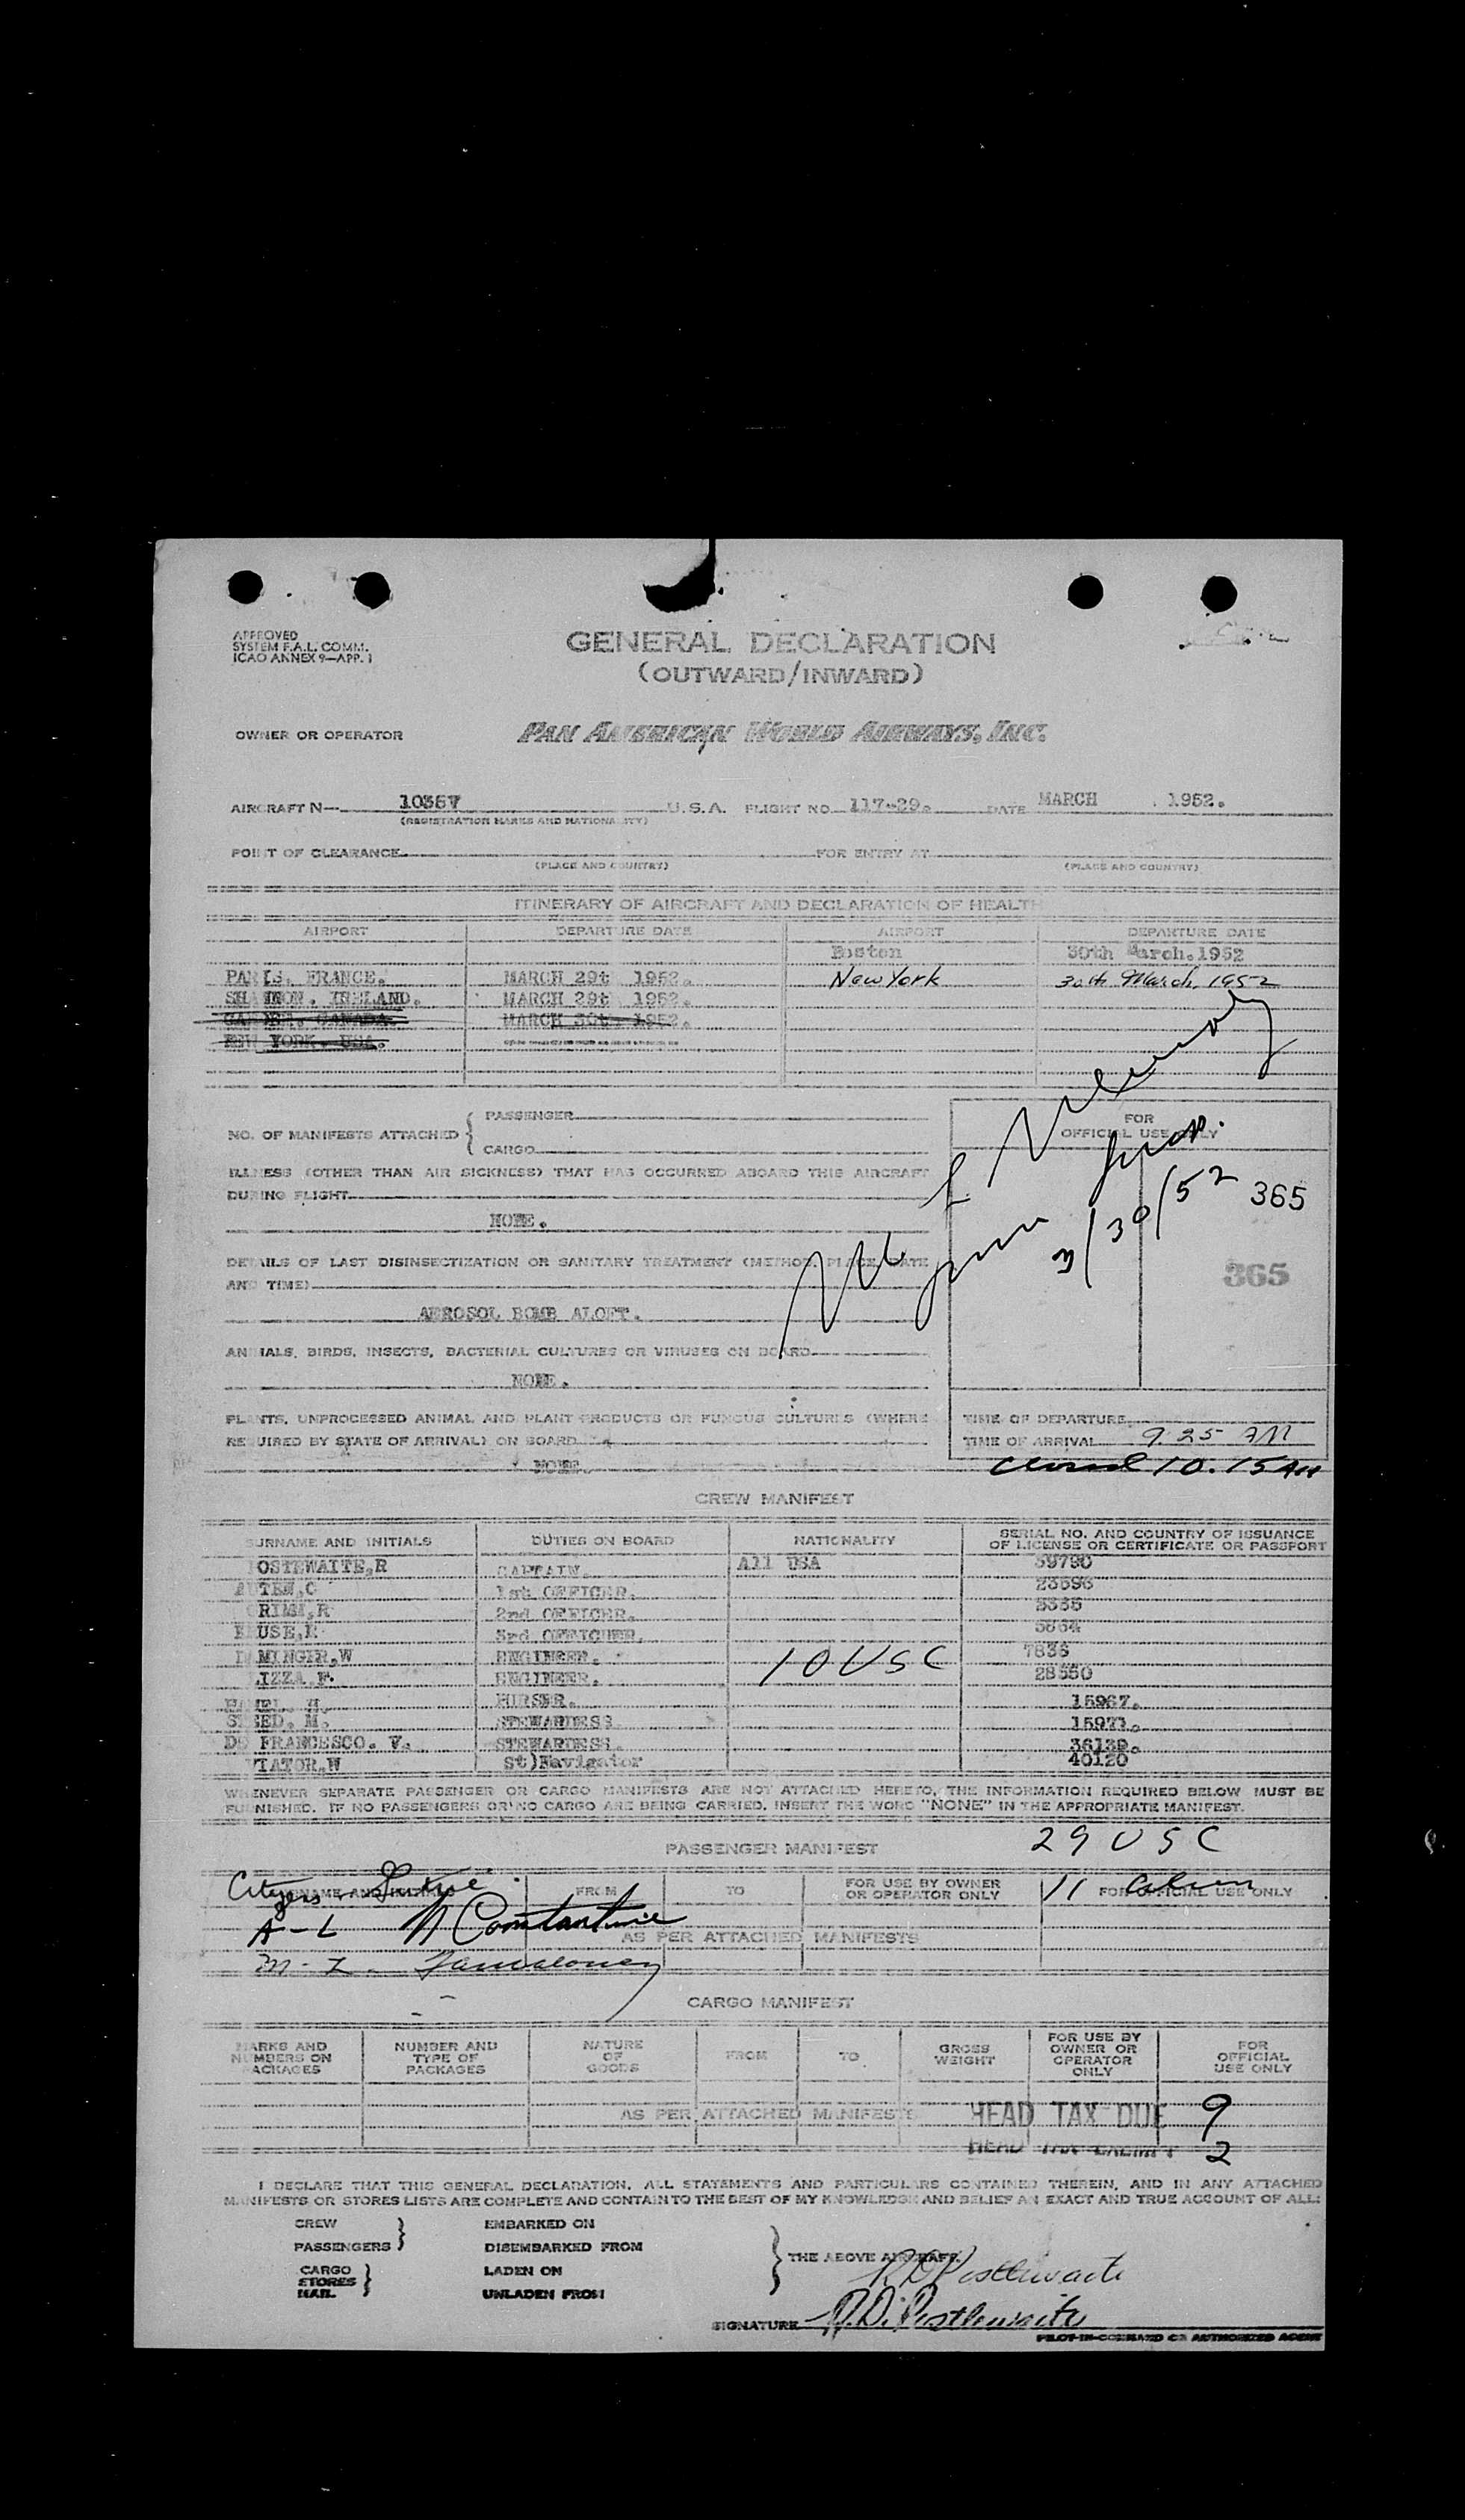 APPROVED
SYSTEM F.A.L. COMM.
ICAO ANNEX 9—APP. 1
GENERAL DECLARATION
(OUTWARD/INWARD)
OWNER OR OPERATOR PAN AMERICAN WORLD AIRWAYS, INC.
AIRCRAFT N— 10367 U.S.A. FLIGHT NO. 117-29. DATE MARCH . 1952.
(REGISTRATION MARKS AND NATIONALITY)
POINT OF CLEARANCE FOR ENTRY AT
(PLACE AND COUNTRY) (PLACE AND COUNTRY)
ITINERARY OF AIRCRAFT AND DECLARATION OF HEALTH
AIRPORT DEPARTURE DATE AIRPORT DEPARTURE DATE
Boston 30th March.1952
PARIS. FRANCE. MARCH 29t 1952. New York 30th March, 1952
SHANNON. IRELAND. MARCH 29t 1952.
GANDER. CANADA. MARCH 30t 1952.
NEW YORK. USA.
NO. OF MANIFESTS ATTACHED { PASSENGER
CARGO
FOR
OFFICIAL USE ONLY
ILLNESS (OTHER THAN AIR SICKNESS) THAT HAS OCCURRED ABOARD THIS AIRCRAFT
DURING FLIGHT
NONE.
3/30/52 365
365
DETAILS OF LAST DISINSECTIZATION OR SANITARY TREATMENT (METHOD, PLACE, DATE
AND TIME)
AEROSOL BOMB ALOFT.
ANIMALS, BIRDS, INSECTS, BACTERIAL CULTURES OR VIRUSES ON BOARD
NONE.
PLANTS, UNPROCESSED ANIMAL AND PLANT PRODUCTS OR FUNGUS CULTURES (WHERE
REQUIRED BY STATE OF ARRIVAL) ON BOARD
NONE.
TIME OF DEPARTURE
TIME OF ARRIVAL 9 25 AM
10.15 AM
CREW MANIFEST
SURNAME AND INITIALS DUTIES ON BOARD NATIONALITY SERIAL NO. AND COUNTRY OF ISSUANCE
OF LICENSE OR CERTIFICATE OR PASSPORT
OSTEWAITE,R CAPTAIN. All USA 39790
AUTEN,C 1st OFFICER. 23696
RIMM,R 2nd OFFICER.
3rd OFFICHER.
MINGER,W ENGINEER. 10 USC 7836
LIZZA.F. ENGINEER. 28550
PURSER. 15967.
M. STEWARDESS. 15971.
DE FRANCESCO. V. STEWARDESS. 36139.
TATOR,W St)Navigator 40120
WHENEVER SEPARATE PASSENGER OR CARGO MANIFESTS ARE NOT ATTACHED HERETO, THE INFORMATION REQUIRED BELOW MUST BE
FURNISHED. IF NO PASSENGERS OR NO CARGO ARE BEING CARRIED, INSERT THE WORD "NONE" IN THE APPROPRIATE MANIFEST.
PASSENGER MANIFEST 29 USC
SURNAME AND INITIALS FROM TO FOR USE BY OWNER
OR OPERATOR ONLY 11 FOR OFFICIAL USE ONLY
A-L N Constantine
AS PER ATTACHED MANIFESTS
M-Z.
CARGO MANIFEST
MARKS AND
NUMBERS ON
PACKAGES NUMBER AND
TYPE OF
PACKAGES NATURE
OF
GOODS FROM TO GROSS
WEIGHT FOR USE BY
OWNER OR
OPERATOR
ONLY FOR
OFFICIAL
USE ONLY
AS PER ATTACHED MANIFESTS HEAD TAX DUE 9
HEAD TAX EXEMPT 2
I DECLARE THAT THIS GENERAL DECLARATION, ALL STATEMENTS AND PARTICULARS CONTAINED THEREIN, AND IN ANY ATTACHED
MANIFESTS OR STORES LISTS ARE COMPLETE AND CONTAIN TO THE BEST OF MY KNOWLEDGE AND BELIEF AN EXACT AND TRUE ACCOUNT OF ALL:
CREW
PASSENGERS } EMBARKED ON
DISEMBARKED FROM
CARGO
STORES
MAIL } LADEN ON
UNLADEN FROM
} THE ABOVE AIRCRAFT.
R D Postlewaite
SIGNATURE R.D. Postlewaite
PILOT-IN-COMMAND OR AUTHORIZED AGENT